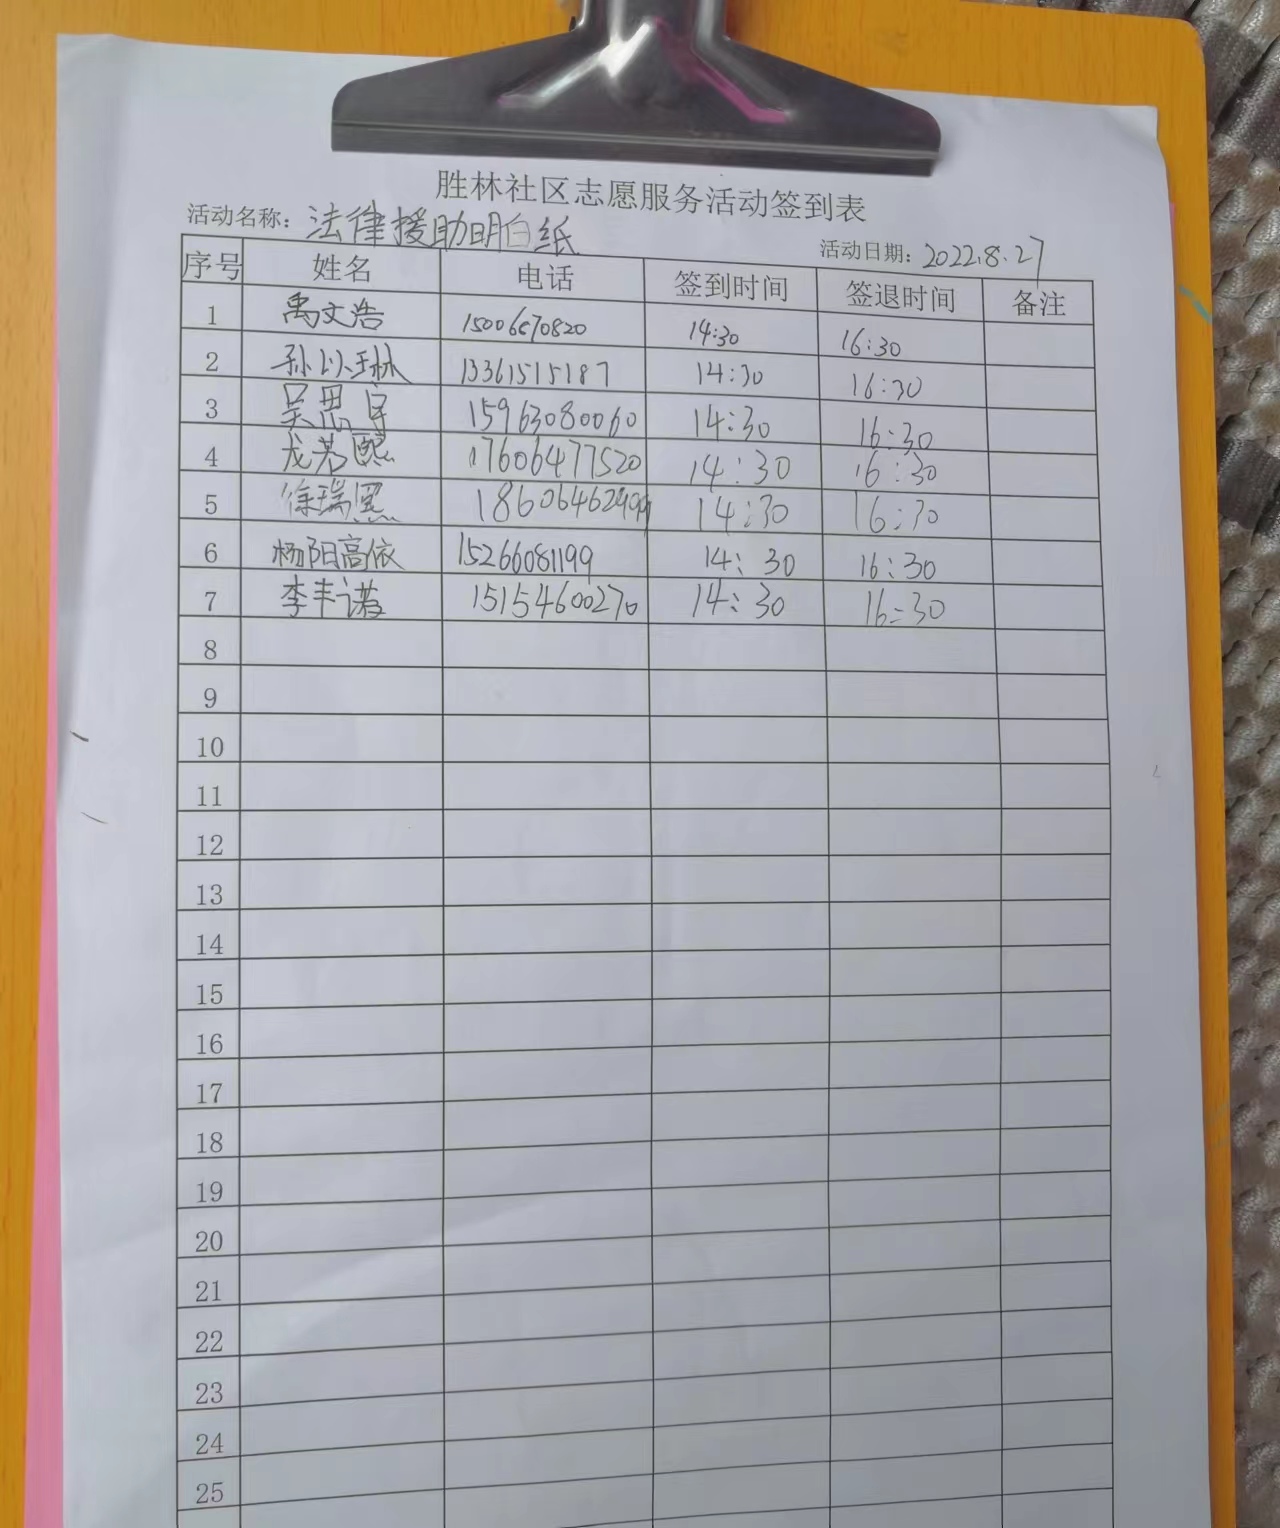 胜林社区志愿服务活动签到表
活动名称：法律援助明白纸 活动日期：2022.8.27
序号 姓名 电话 签到时间 签退时间 备注
1 禹文浩 15006870820 14:30 16:30
2 孙以琳 13361515187 14:30 16:30
3 吴思宇 15963080060 14:30 16:30
4 龙若熙 17606477520 14:30 16:30
5 徐瑞 18606462999 14:30 16:30
6 杨阳高依 15266081199 14:30 16:30
7 李丰诺 15154600270 14:30 16:30
8
9
10
11
12
13
14
15
16
17
18
19
20
21
22
23
24
25